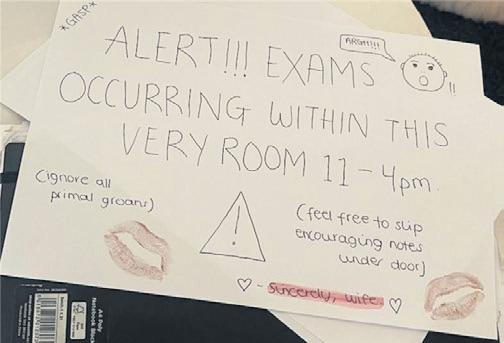 *GASP*
ARGH!!!
ALERT!!! EXAMS
!!
OCCURRING WITHIN THIS
VERY ROOM 11-4pm.
(ignore all
primal groans)
!
(feel free to slip
encouraging notes
under door)
♡ - Sincerely, wife ♡
A4 Daily
Notebook Black